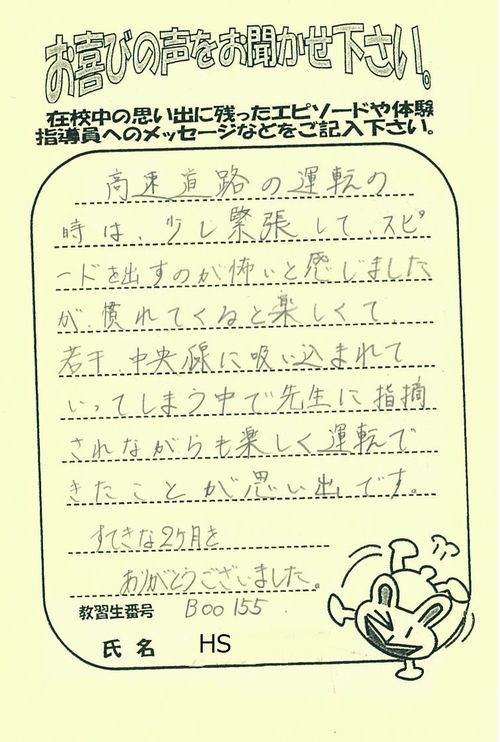 お喜びの声をお聞かせ下さい。
在校中の思い出に残ったエピソードや体験
指導員へのメッセージなどをご記入下さい。
高速道路の運転の
時は、少し緊張して、スピ
ードを出すのが怖いと感じました
が、慣れてくると楽しくて、
若干、中央線に吸い込まれて
いってしまう中で先生に指摘
されながらも楽しく運転で
きたことが思い出です。
すてきな2ケ月を
ありがとうございました。
教習生番号 B00155
氏名 HS